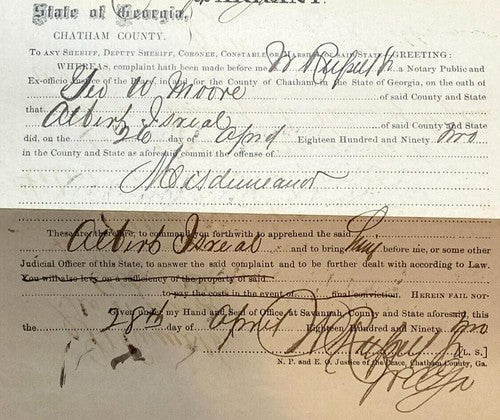 WARRANT.
State of Georgia,
CHATHAM COUNTY.
TO ANY SHERIFF, DEPUTY SHERIFF, CORONER, CONSTABLE OR MARSHAL OF SAID STATE, GREETING:
WHEREAS, complaint hath been made before me a Notary Public and
Ex-officio Justice of the Peace, in and for the County of Chatham, in the State of Georgia, on the oath of
Geo W Moore of said County and State
that Albert Isreal of said County and State
did, on the 26 day of April Eighteen Hundred and Ninety two
in the County and State as aforesaid commit the offense of
Misdemeanor
These are, therefore, to command you forthwith to apprehend the said
Albert Isreal and to bring him before me, or some other
Judicial Officer of this State, to answer the said complaint and to be further dealt with according to Law.
You will also levy on a sufficiency of the property of said
to pay the costs in the event of final conviction. HEREIN FAIL NOT.
Given under my Hand and Seal of Office at Savannah, County and State aforesaid this
the 28th day of April Eighteen Hundred and Ninety two
[L. S.]
N. P. and E. O. Justice of the Peace, Chatham County, Ga.